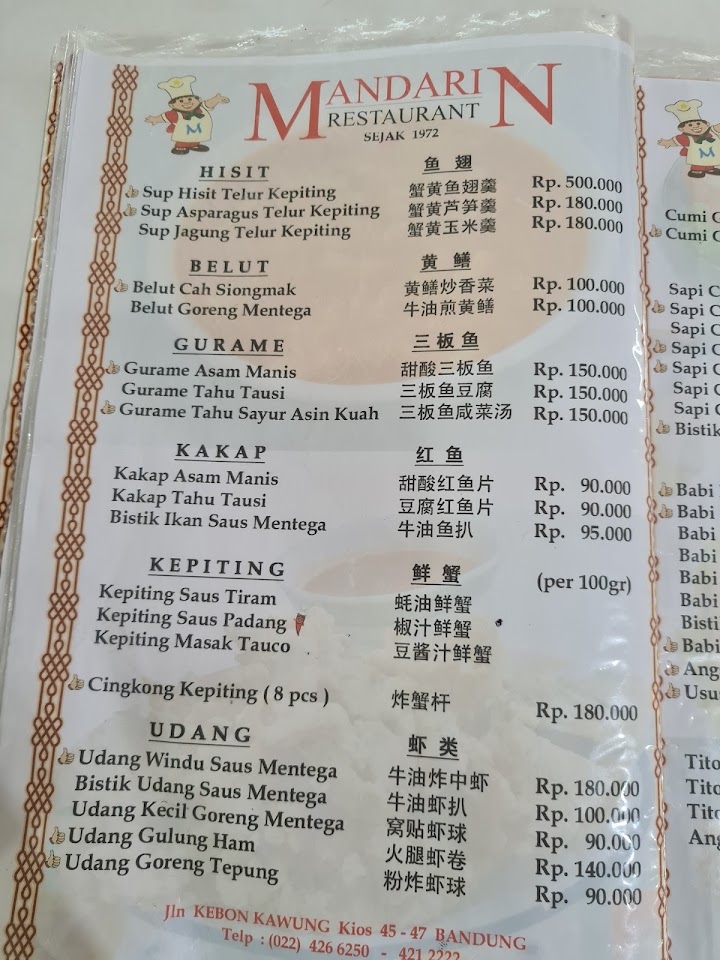 MANDARIN
RESTAURANT
SEJAK 1972
M
HISIT 鱼翅
Sup Hisit Telur Kepiting 蟹黄鱼翅羹 Rp. 500.000
Sup Asparagus Telur Kepiting 蟹黄芦笋羹 Rp. 180.000
Sup Jagung Telur Kepiting 蟹黄玉米羹 Rp. 180.000
BELUT 黄鳝
Belut Cah Siongmak 黄鳝炒香菜 Rp. 100.000
Belut Goreng Mentega 牛油煎黄鳝 Rp. 100.000
GURAME 三板鱼
Gurame Asam Manis 甜酸三板鱼 Rp. 150.000
Gurame Tahu Tausi 三板鱼豆腐 Rp. 150.000
Gurame Tahu Sayur Asin Kuah 三板鱼咸菜汤 Rp. 150.000
KAKAP 红鱼
Kakap Asam Manis 甜酸红鱼片 Rp. 90.000
Kakap Tahu Tausi 豆腐红鱼片 Rp. 90.000
Bistik Ikan Saus Mentega 牛油鱼扒 Rp. 95.000
KEPITING 鲜蟹 (per 100gr)
Kepiting Saus Tiram 蚝油鲜蟹
Kepiting Saus Padang 椒汁鲜蟹
Kepiting Masak Tauco 豆酱汁鲜蟹
Cingkong Kepiting ( 8 pcs ) 炸蟹杆 Rp. 180.000
UDANG 虾类
Udang Windu Saus Mentega 牛油炸中虾 Rp. 180.000
Bistik Udang Saus Mentega 牛油虾扒 Rp. 100.000
Udang Kecil Goreng Mentega 窝贴虾球 Rp. 90.000
Udang Gulung Ham 火腿虾卷 Rp. 140.000
Udang Goreng Tepung 粉炸虾球 Rp. 90.000
Jln KEBON KAWUNG Kios 45 - 47 BANDUNG
Telp : (022) 426 6250 - 421 2222
M
Cumi
Cumi
Sapi C
Sapi C
Sapi C
Sapi C
Sapi C
Sapi
Sapi
Bistik
Babi
Babi
Babi
Babi
Babi
Babi
Bisti
Babi
Ang
Usu
Tito
Tito
Tito
Ang